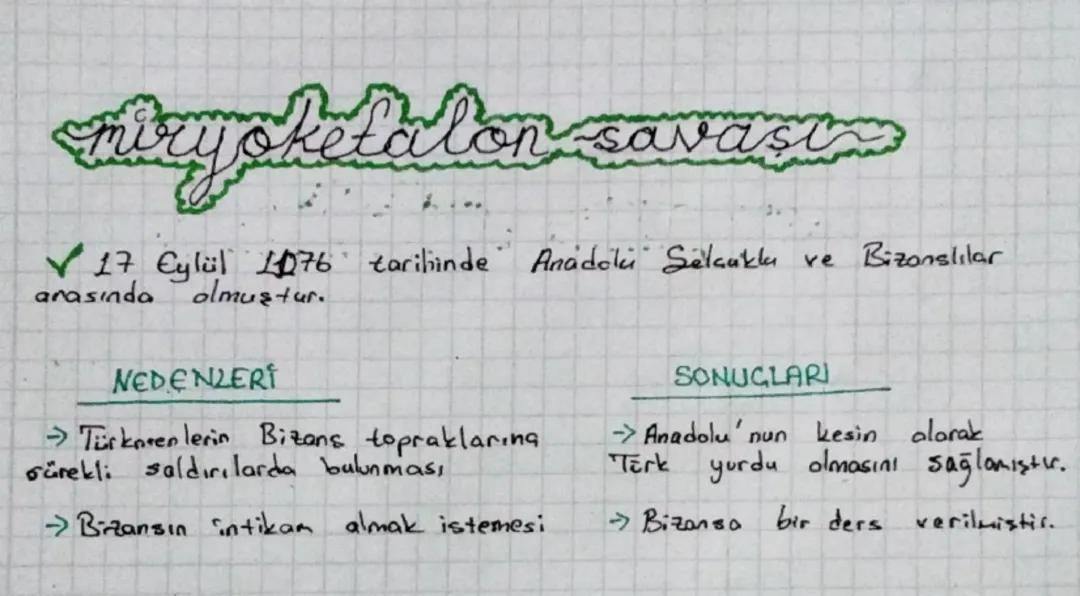 miryokefalon savaşı
✓ 17 Eylül 1176 tarihinde Anadolu Selçuklu ve Bizanslılar
arasında olmuştur.
NEDENLERİ
→ Türkmenlerin Bizans topraklarına
sürekli saldırılarda bulunması
→ Bizansın intikam almak istemesi
SONUÇLARI
→ Anadolu'nun kesin olarak
Türk yurdu olmasını sağlamıştır.
→ Bizansa bir ders verilmiştir.